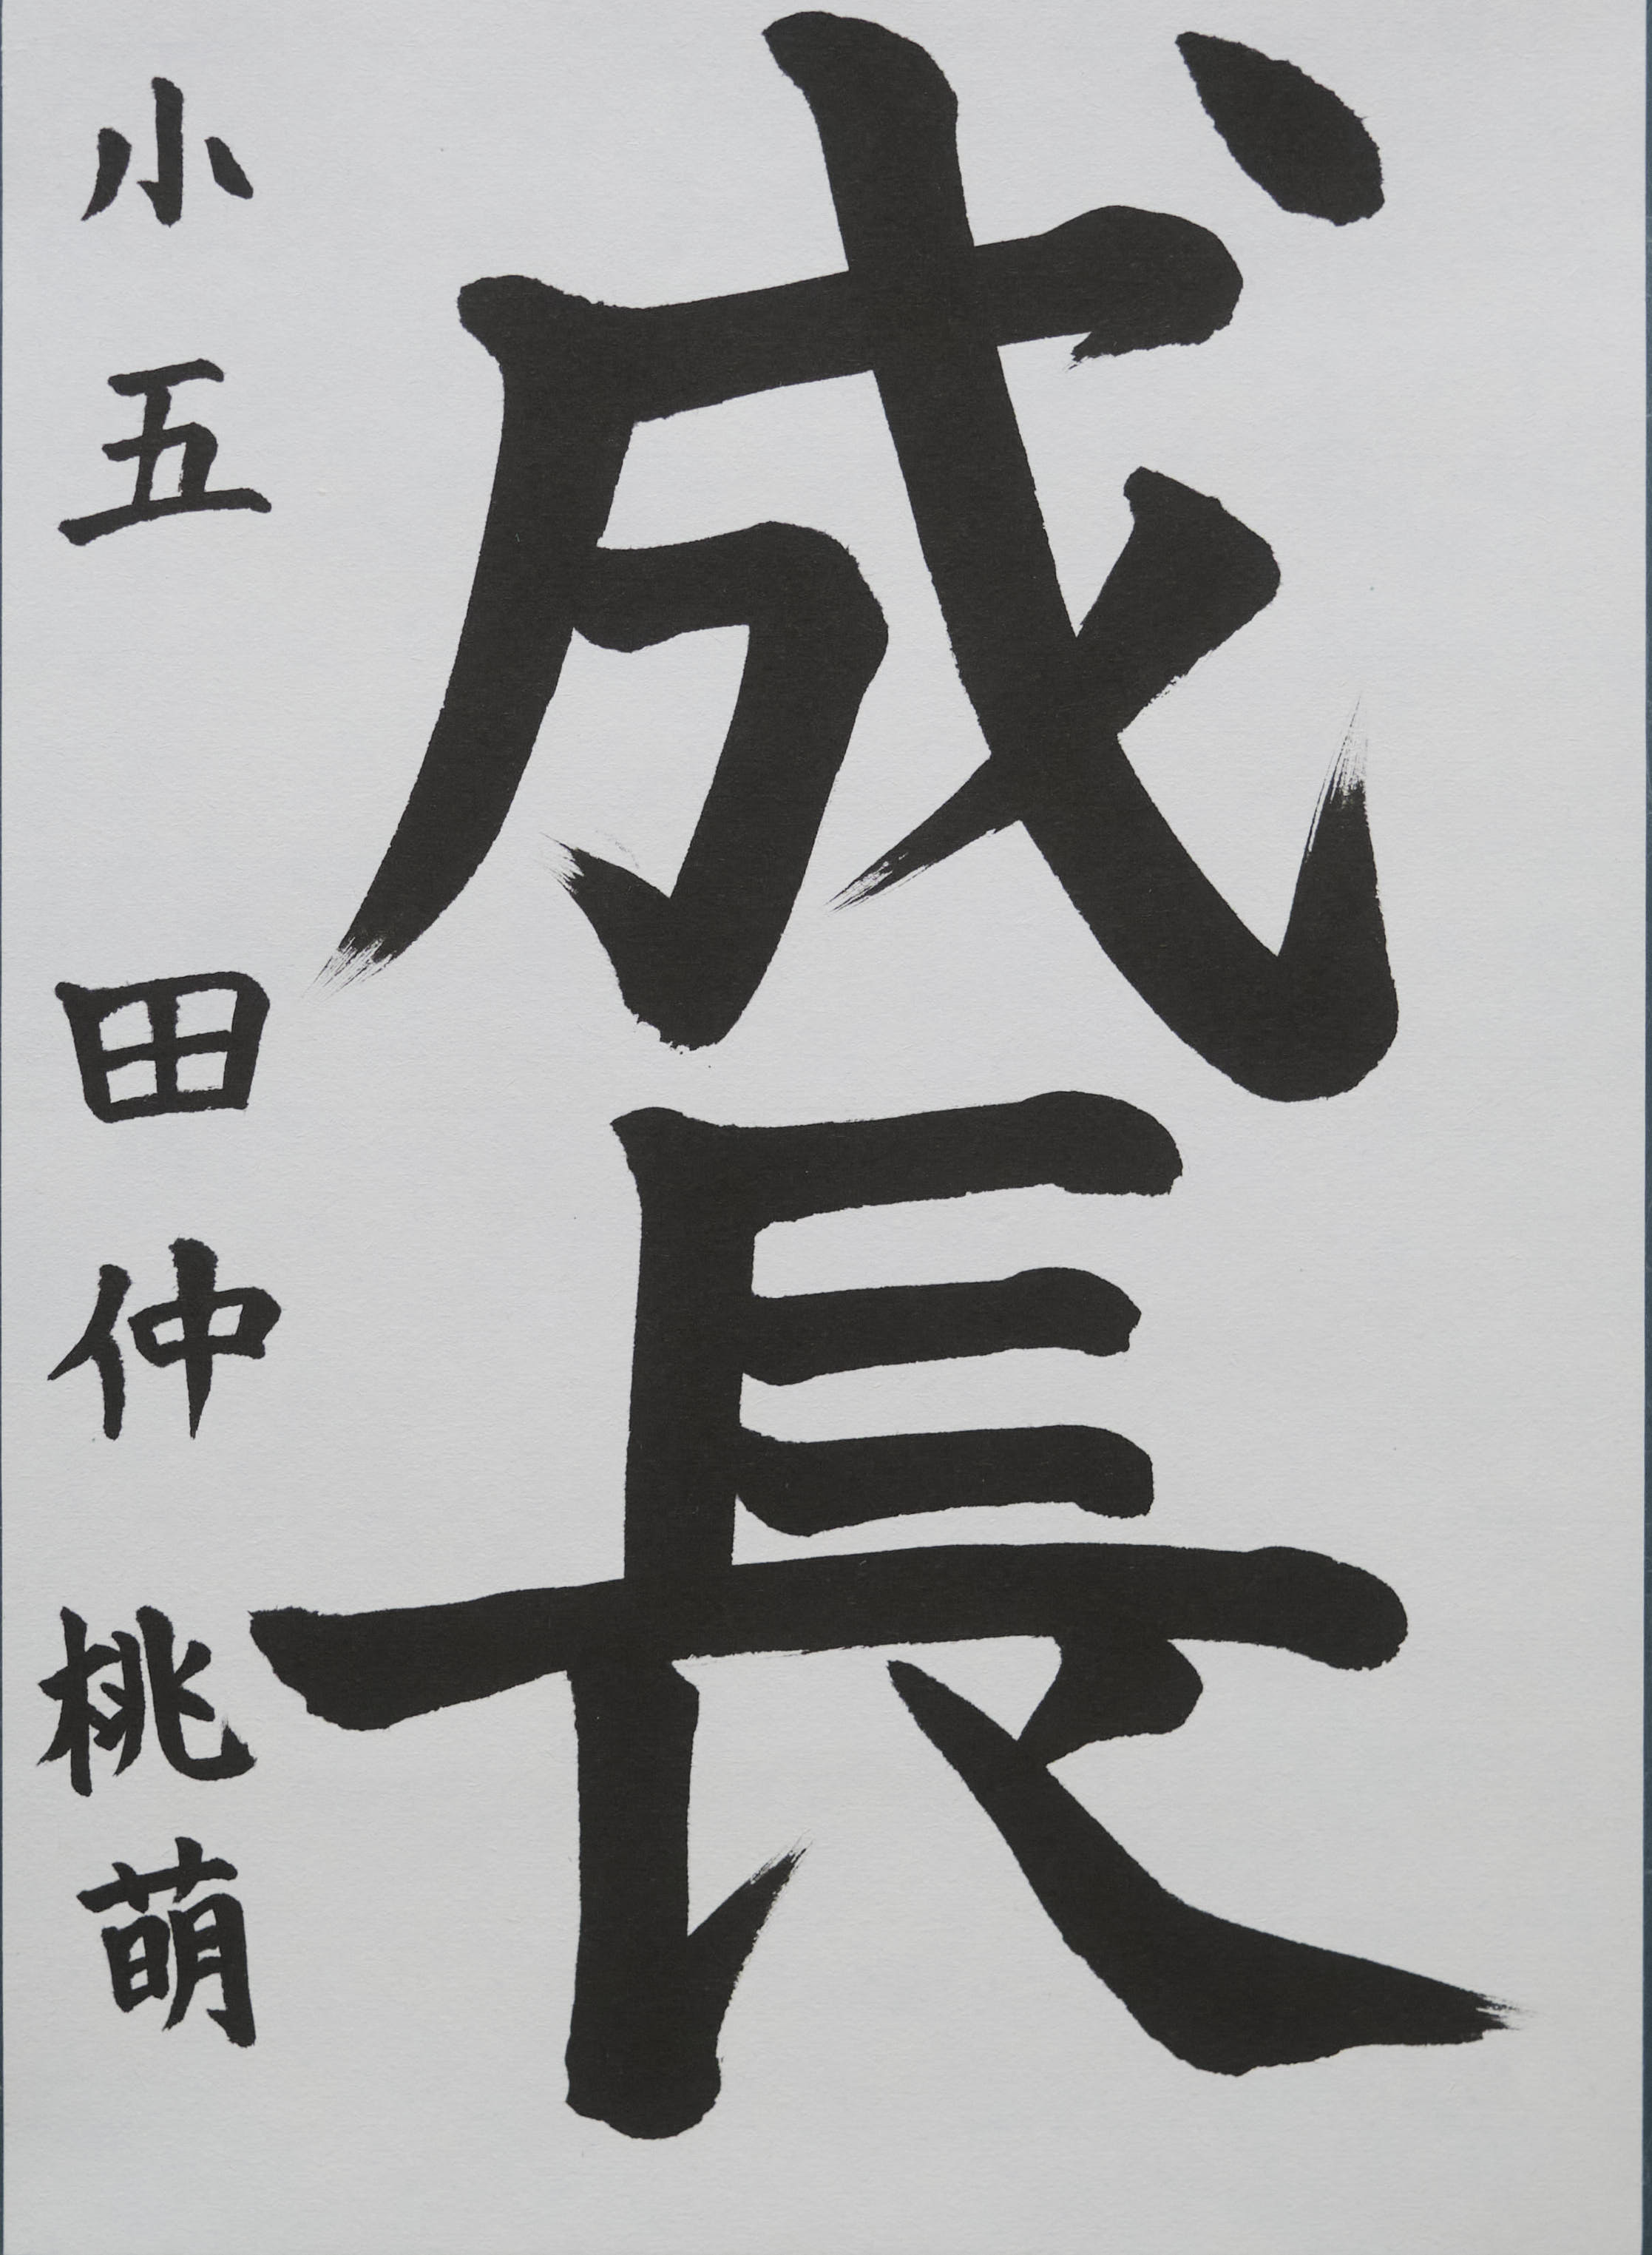 成長
小五 田仲桃萌